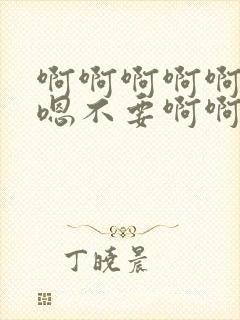 啊啊啊啊啊
嗯不要啊啊
丁晓晨